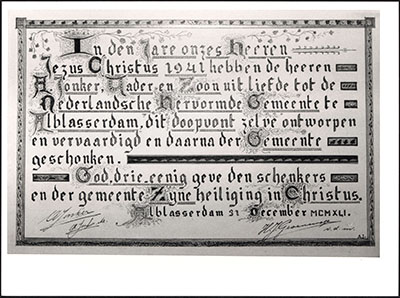 In den Jare onzes Heeren
Jezus Christus 1941 hebben de heeren
Jonker, Vader en Zoon uit liefde tot de
Nederlandsche Hervormde Gemeente te
Alblasserdam, dit doopvont zelve ontworpen
en vervaardigd en daarna der Gemeente
geschonken.
God, drie-eenig geve den schenkers
en der gemeente Zyne heiliging in Christus.
Alblasserdam 21 December MCMXLI.